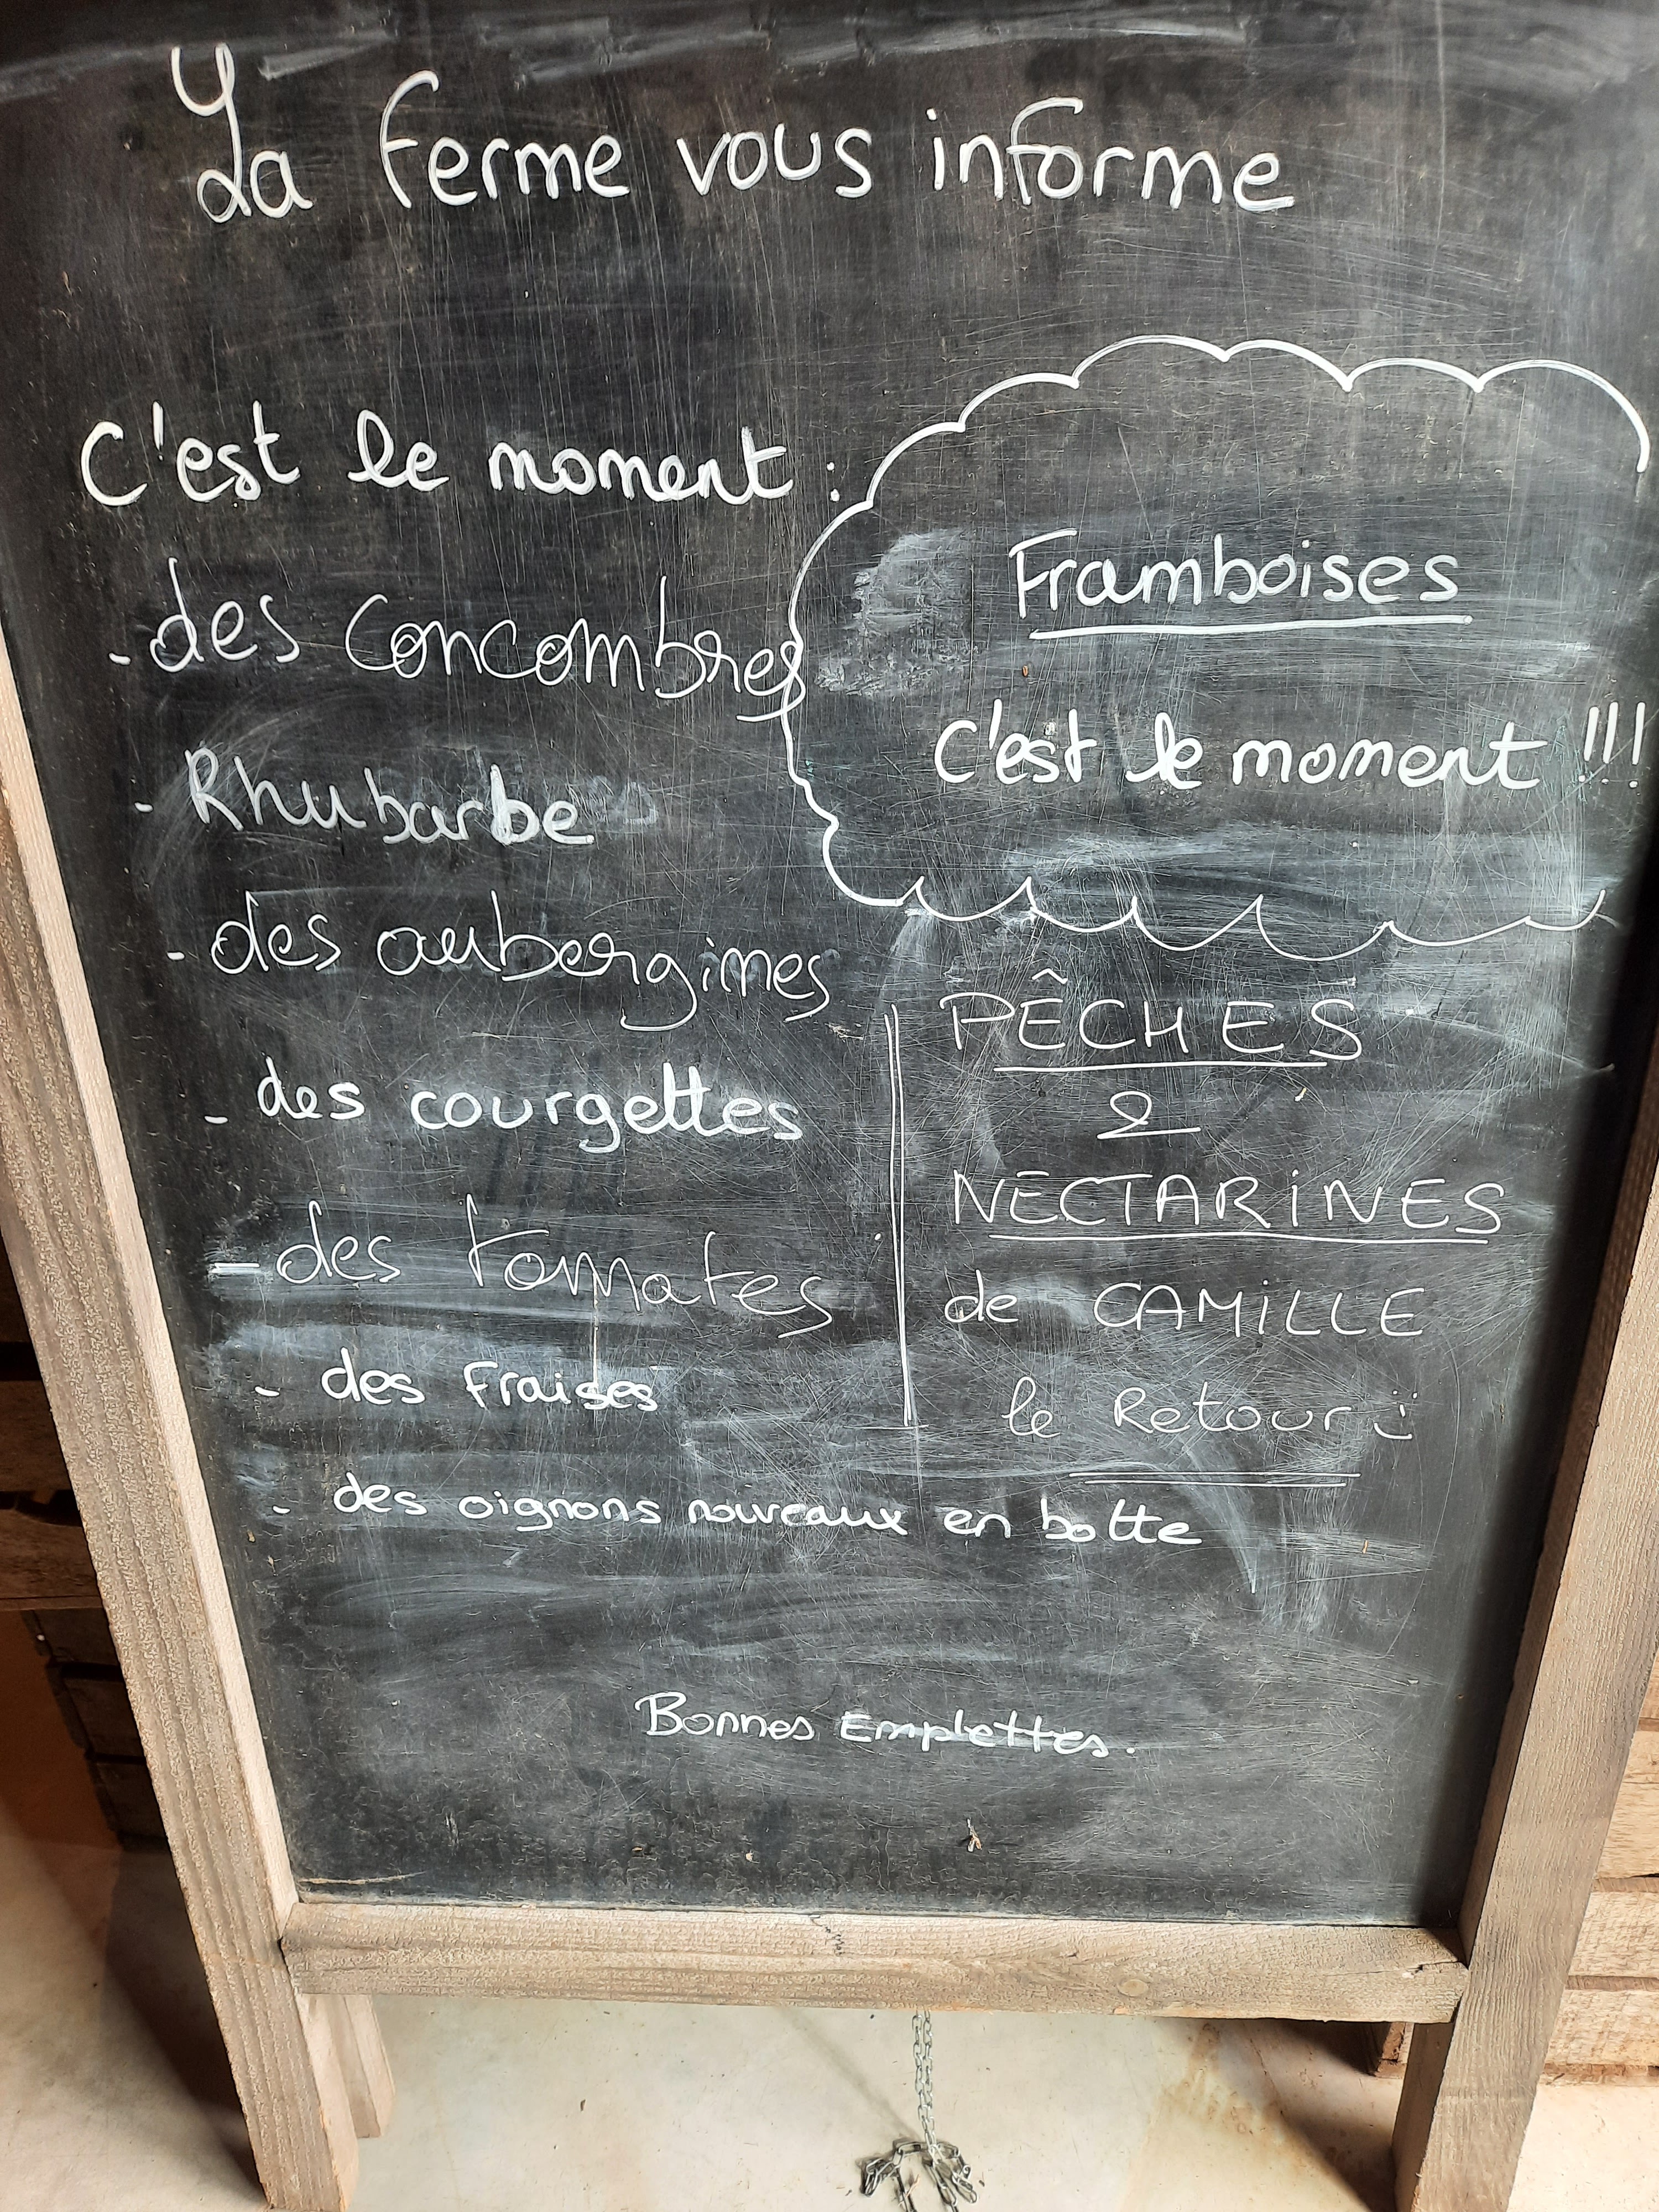 La ferme vous informe
C'est le moment :
- des concombres
- Rhubarbe
- des aubergines
- des courgettes
- des tomates
- des fraises
- des oignons nouveaux en botte
Framboises
C'est le moment !!!
PÊCHES
&
NECTARINES
de CAMILLE
le Retour :)
Bonnes Emplettes.